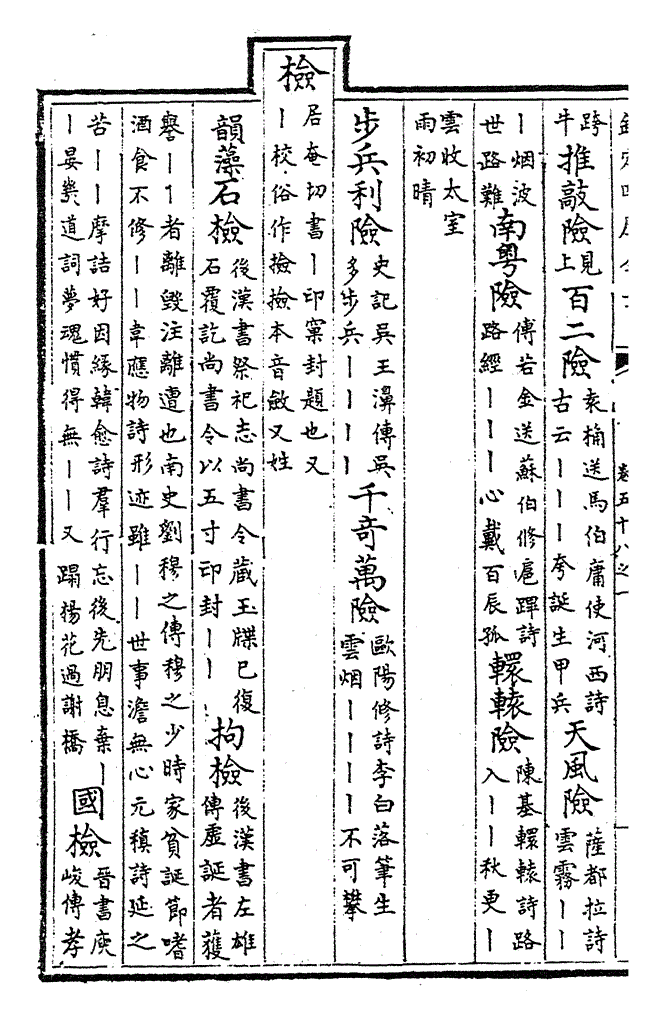 卷五十八之一
跨牛推敲險見上百二險袁桷送馬伯庸使河西詩古云｜｜｜夸誕生甲兵天風險薩都拉詩雲霧｜｜
｜烟波世路難南粵險傅若金送蘇伯修扈蹕詩路經｜｜｜心戴百辰孤轘轅險陳基轘轅詩路入｜｜秋更｜
雲收太室雨初晴
步兵利險史記吳王濞傳吳多步兵｜｜｜｜千奇萬險歐陽修詩李白落筆生雲烟｜｜｜｜不可攀
檢居奄切書｜印窠封題也又｜校俗作撿撿本音斂又姓
韻藻石檢後漢書祭祀志尚書令藏玉牒已復石覆訖尚書令以五寸印封｜｜拘檢後漢書左雄傳虛誕者獲
譽｜｜者離毀注離遭也南史劉穆之傳穆之少時家貧誕節嗜酒食不修｜｜韋應物詩形迹雖｜｜世事澹無心元稹詩延之
苦｜｜摩詰好因緣韓愈詩羣行忘後先朋息棄｜｜晏幾道詞夢魂慣得無｜｜又蹋楊花過謝橋國檢晉書庾峻傳孝